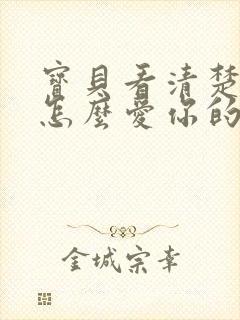 寶貝看清楚
怎麼愛你的
金城宗幸